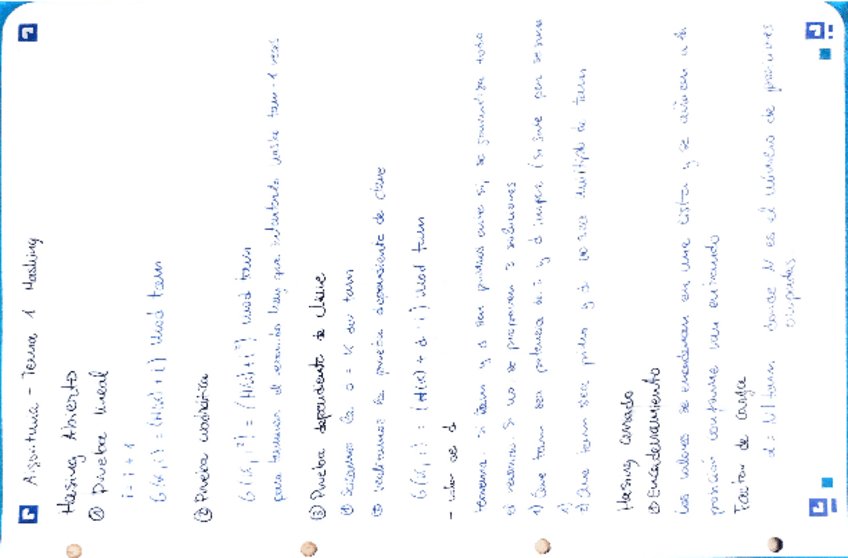 Algoritmia - Tema 1 Hashing
Hasing Abierto
① Prueba lineal
i = i + 1
G(k, i) = (H(k) + i) mod tam
② Prueba cuadrática
G(k, i²) = (H(k) + i²) mod tam
para terminar el recorrido hay que intentarlo hasta tam-1 veces
③ Prueba dependiente de clave
① Sacamos la d = K div tam
② realizamos la prueba dependiente de clave
G(k, i) = (H(k) + d · i) mod tam
- valor de d
teorema: si tam y d son primos entre sí, se garantiza todo
el recorrido. Si no se proponen 2 soluciones
1) Que tam sea potencia de 2 y d impar (si sale par se suma
1)
2) Que tam sea primo y d no sea multiplo de tam
Hasing cerrado
① Encadenamiento
los valores se encadenan en una lista y se añaden a la
posición conforme van entrando
Factor de carga
d = N / tam donde N es el número de posiciones
ocupadas